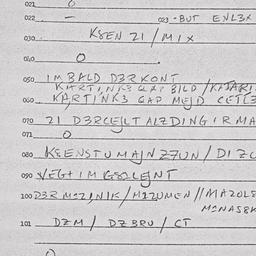 021 0
022 - 023 - BUT ENL3X
030 KSEN ZI / MIX
040 0
050 IMBALD D3RKONT
KARTINK3 GAP BILD / KATARI
060 KARTINK3 GAP MEJD CETL3
070 21 D3RCEJLT ALZDING IRMA
071 0
080 KSENSTUMAJN ZZUN / DIZU
090 VEGTIM
100 D3R / MIZUMEN // MAZOLE
MANASEK
101 DZM / DZBRU / CT
0